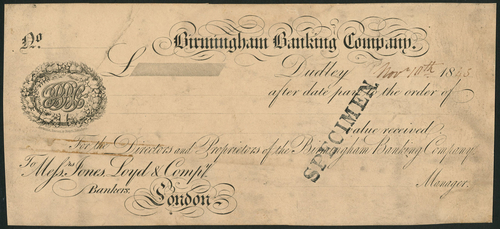 No
Birmingham Banking Company.
£
Dudley Novr 10th 18
after date pay to the order of
value received
SPECIMEN
For the Directors and Proprietors of the Birmingham Banking Company
To Messrs Jones, Loyd & Compy.
Bankers,
London
Manager